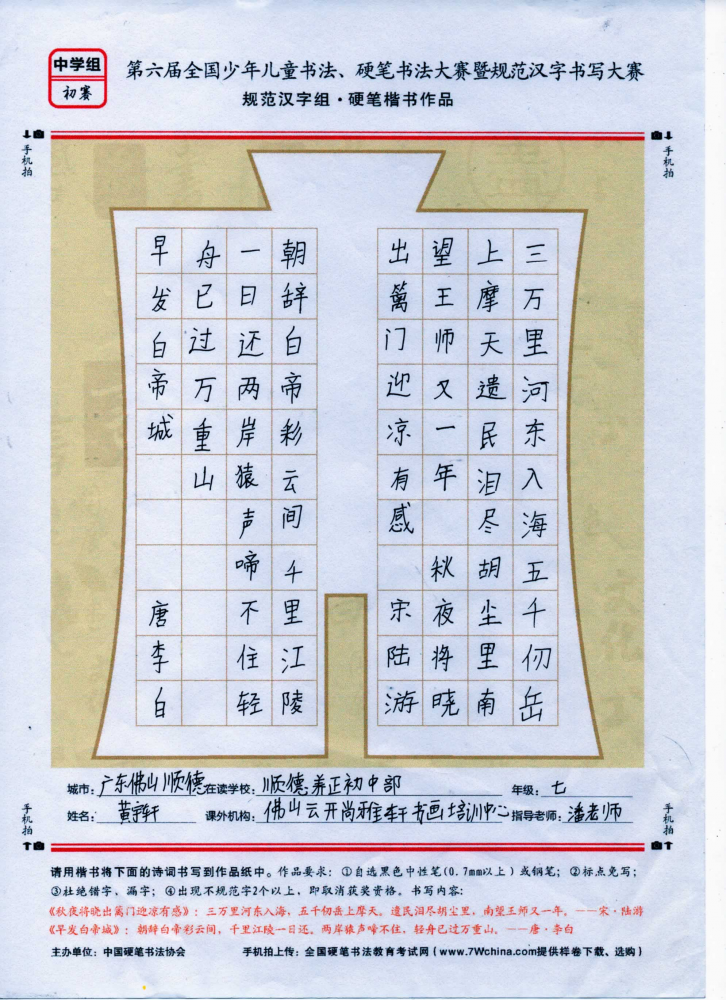 中学组
初赛
第六届全国少年儿童书法、硬笔书法大赛暨规范汉字书写大赛
规范汉字组·硬笔楷书作品
手机拍
手机拍
三万里河东入海五千仞岳
上摩天遗民泪尽胡尘里南
望王师又一年 秋夜将晓
出篱门迎凉有感 宋陆游
朝辞白帝彩云间千里江陵
一日还两岸猿声啼不住轻
舟已过万重山
早发白帝城 唐李白
城市：广东佛山顺德 在读学校：顺德养正初中部 年级：七
姓名：黄宇轩 课外机构：佛山云开尚雅轩书画培训中心 指导老师：潘老师
手机拍
手机拍
请用楷书将下面的诗词书写到作品纸中。作品要求：①自选黑色中性笔(0.7mm以上）或钢笔；②标点免写；
③杜绝错字、漏字；④出现不规范字2个以上，即取消获奖资格。书写内容：
《秋夜将晓出篱门迎凉有感》：三万里河东入海，五千仞岳上摩天。遗民泪尽胡尘里，南望王师又一年。——宋·陆游
《早发白帝城》：朝辞白帝彩云间，千里江陵一日还。两岸猿声啼不住，轻舟已过万重山。——唐·李白
主办单位：中国硬笔书法协会 手机拍上传：全国硬笔书法教育考试网（www.7Wchina.com提供样卷下载、选购）